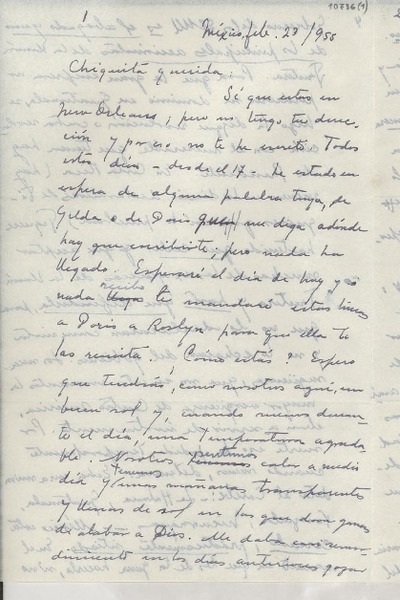 1
10736(1)
México, feb. 28/1955
Chiquita querida:
Sé que estás en
New Orleans, pero no tengo tu direc-
ción y por eso no te he escrito. Todos
estos días - desde el 17 - he estado en
espera de alguna palabra tuya, de
Gilda o de Doris que me diga adónde
hay que escribirte; pero nada ha
llegado. Esperaré el día de hoy y si
nada recibo te mandaré estas líneas
a Doris a Roslyn para que ella te
las remita. ¿Cómo estás? Espero
que tendrás, como nosotros aquí, un
buen sol y, cuando menos duran-
te el día, una temperatura agrada-
ble. Nosotros sentimos calor a medio
día y tenemos unas mañanas transparentes
y llenas de sol en las que dan ganas
de alabar a Dios. Me daba casi remor-
dimiento en los días anteriores gozar